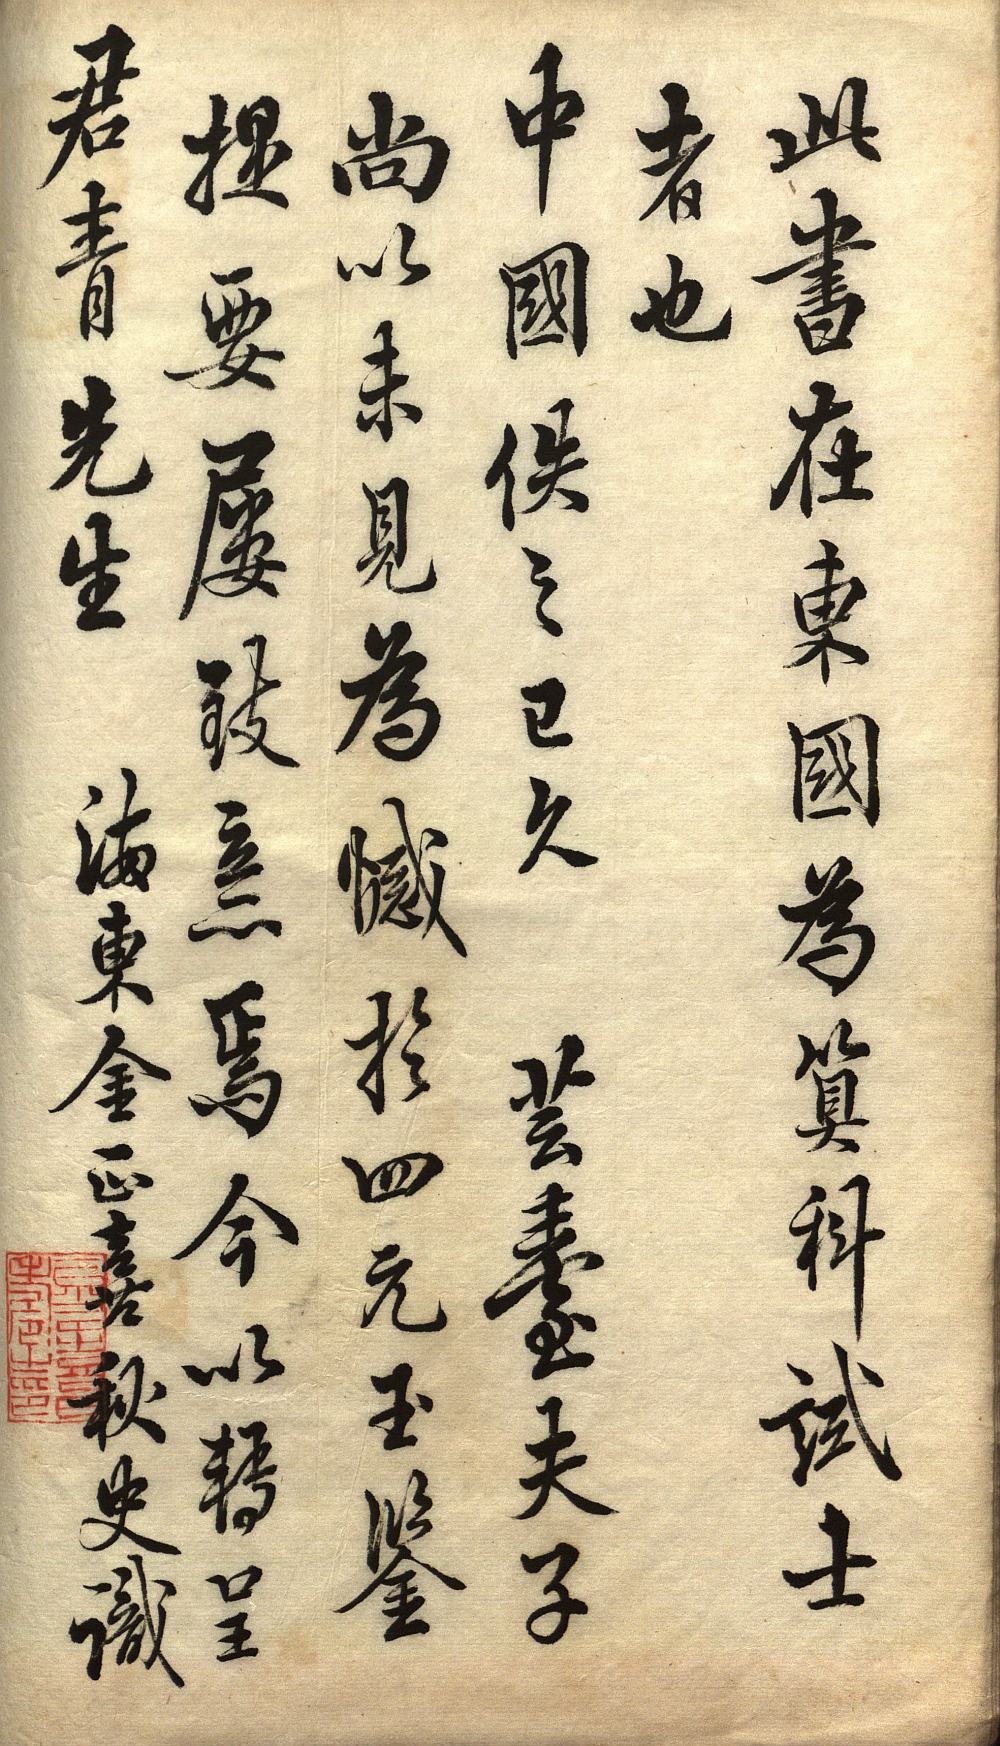 此書在東國為算科試士
者也
中國佚之已久 芸臺夫子
尚以未見為憾於四元玉鑒
提要屢致意焉今以轉呈
君青先生 海東金正喜秋史識